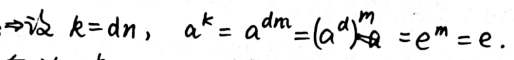 ⇒设 k=dn, a^k = a^{dm} = (a^d)^m = e^m = e.